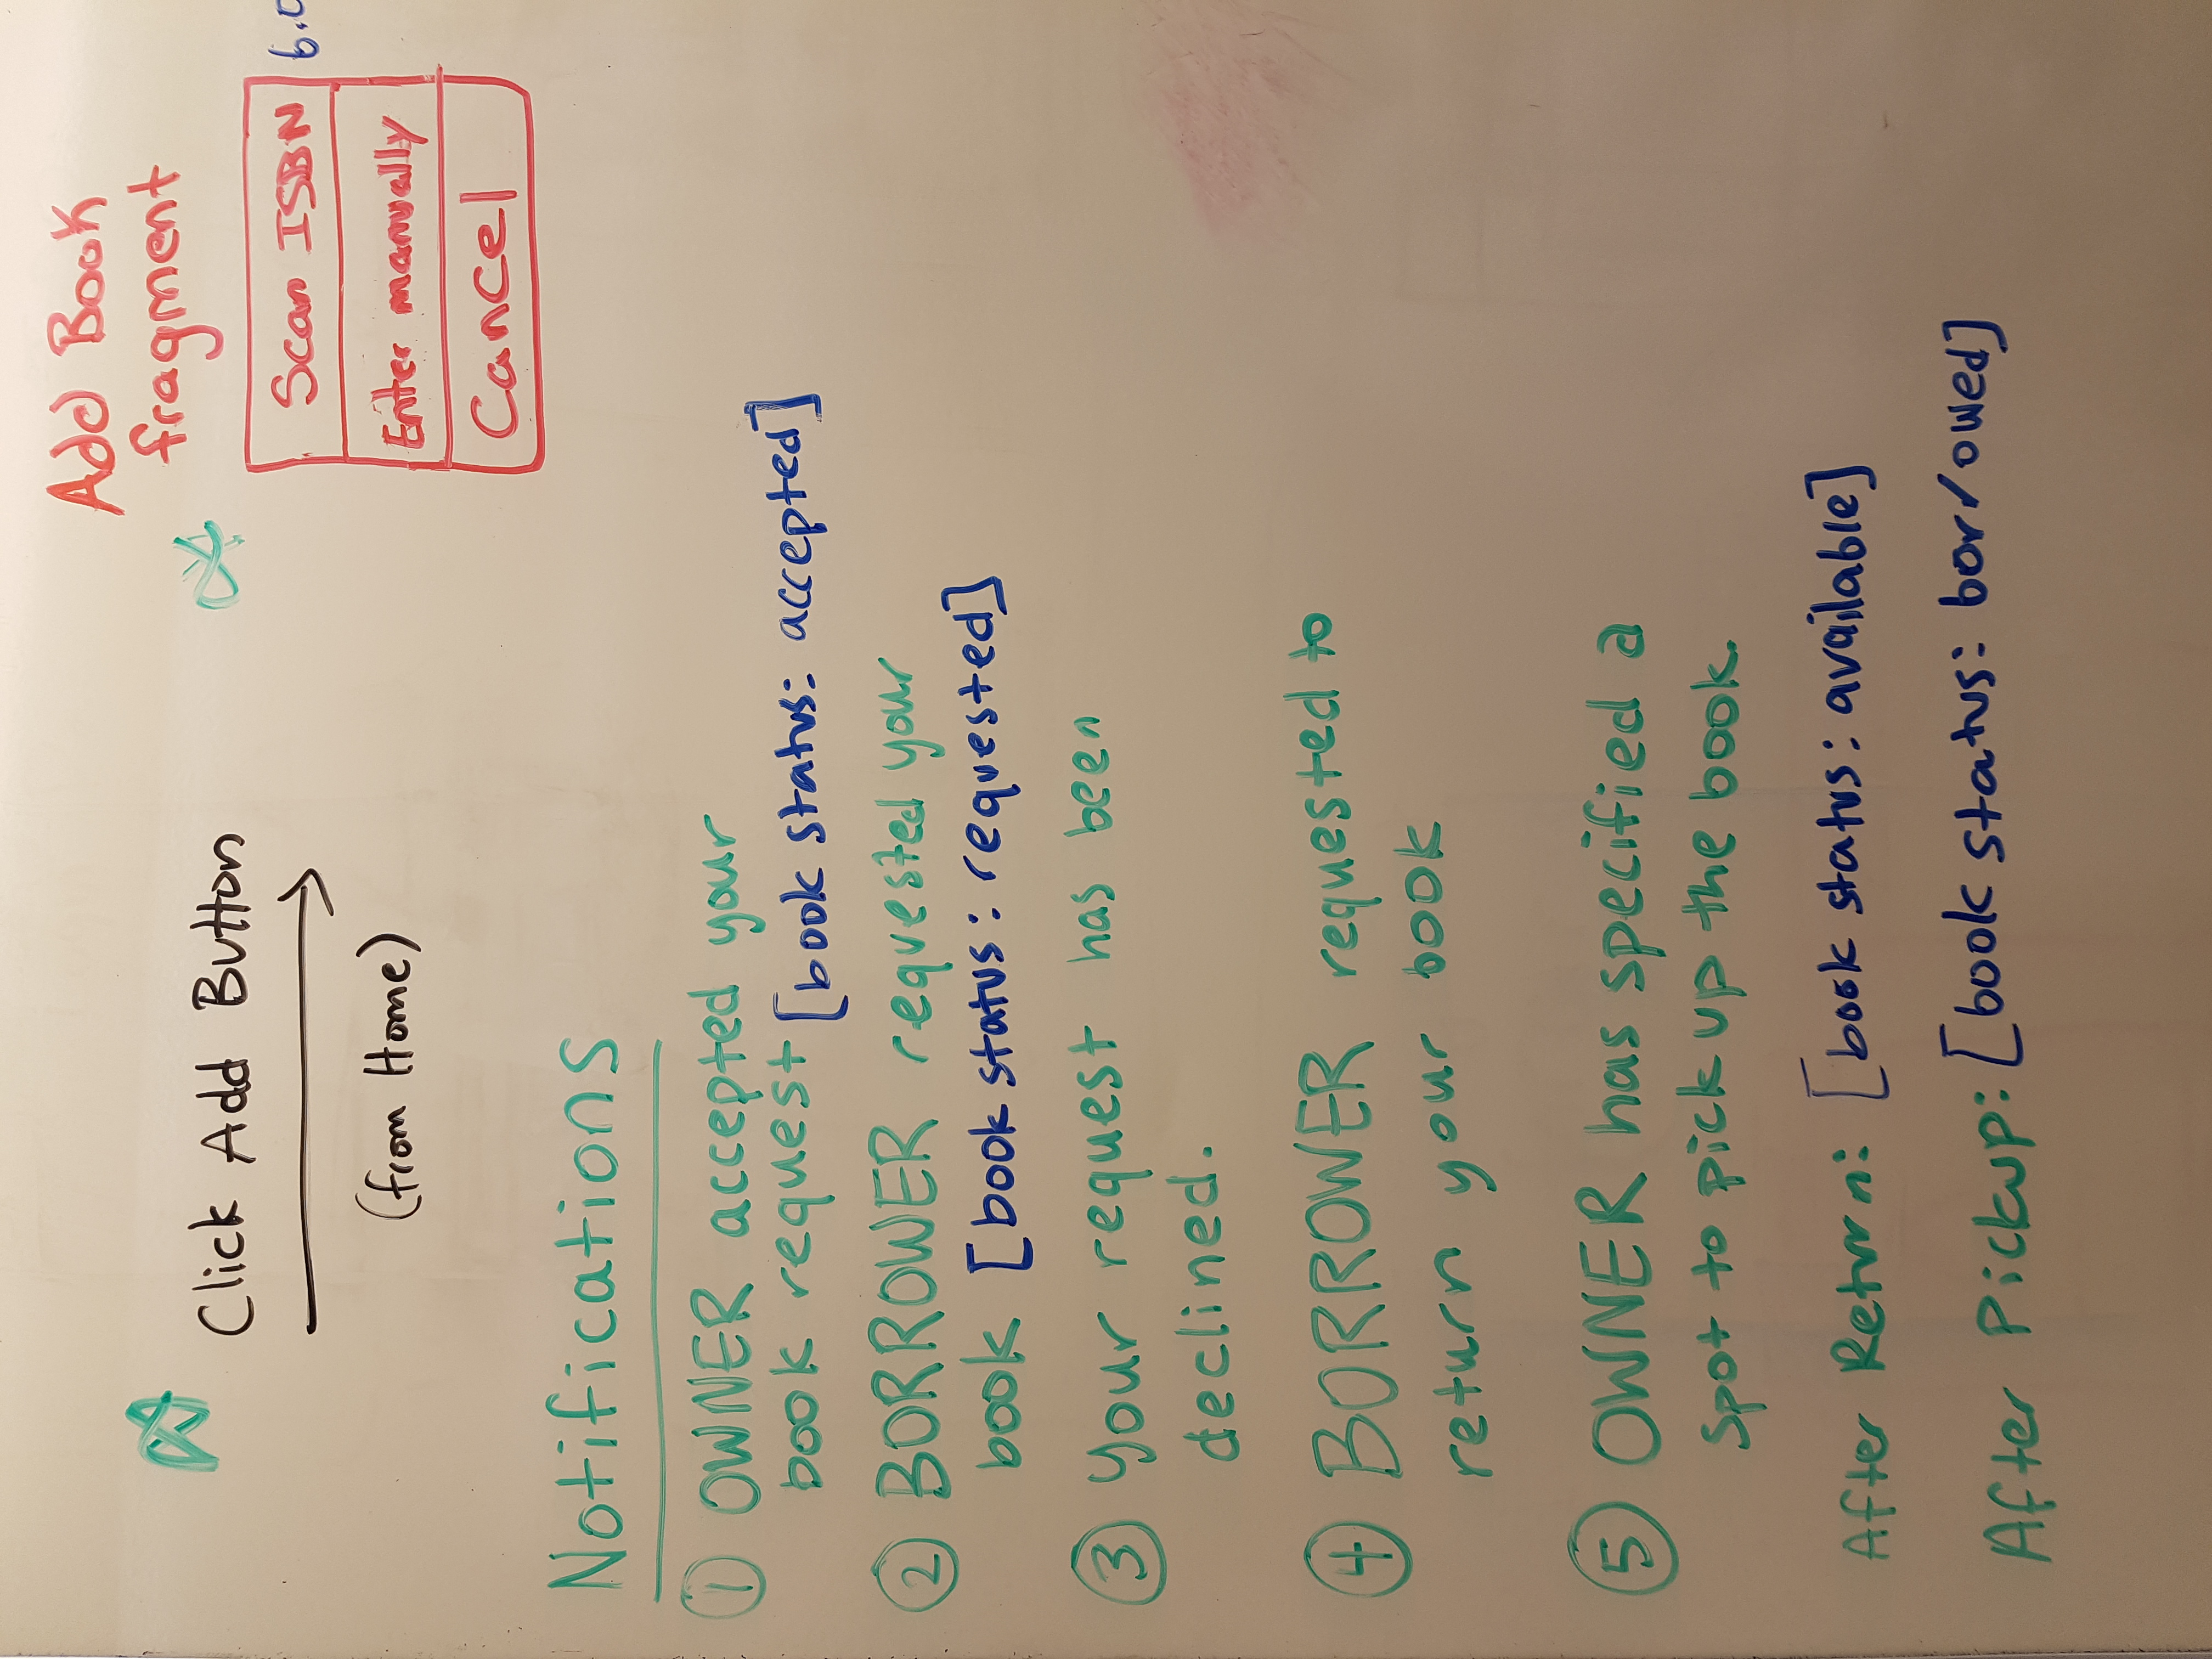 Add Book
fragment
Click Add Button
(from Home)
Scan ISBN
Enter manually
Cancel
Notifications
① OWNER accepted your
book request [book status: accepted]
② BORROWER requested your
book [book status: requested]
③ Your request has been
declined.
④ BORROWER requested to
return your book
⑤ OWNER has specified a
spot to pick up the book.
After Return: [book status: available]
After Pickup: [book status: borrowed]